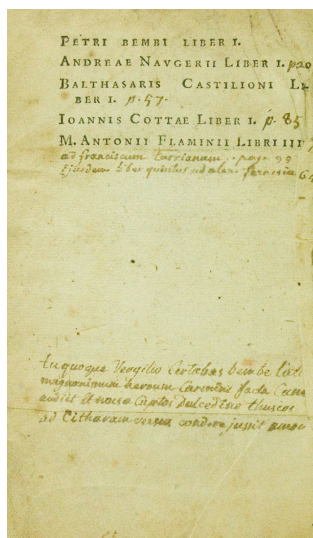 PETRI BEMBI LIBER I.
ANDREAE NAVGERII LIBER I. p20
BALTHASARIS CASTILIONI LI-
BER I. p. 57.
IOANNIS COTTAE LIBER I. p. 85
M. ANTONII FLAMINII LIBRI III
ad franciscum turrianum . page 99
Ejusdem liber quintus ad alex. farnesiu 64
tu quoque Vergilio Certabas bembe
magnanimum heroum facta
audiit et nova Captos dulcedine thuscos
ad Citharam versus condere jussit amor